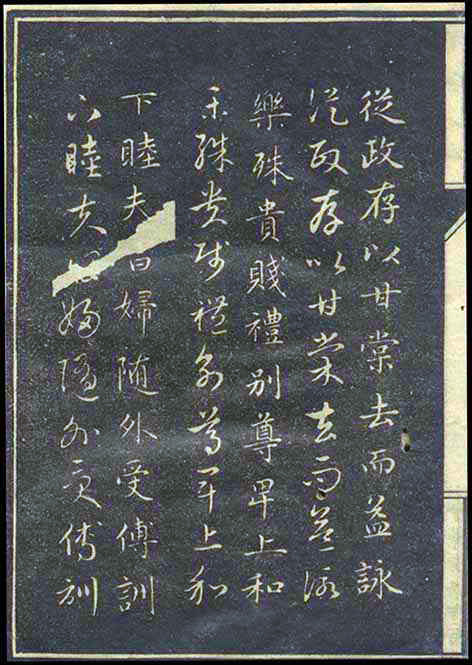 從政存以甘棠去而益詠
從政存以甘棠去而益詠
樂殊貴賤禮别尊卑上和
樂殊貴賤禮别尊卑上和
下睦夫婦随外受傅訓
下睦夫婦随外受傅訓